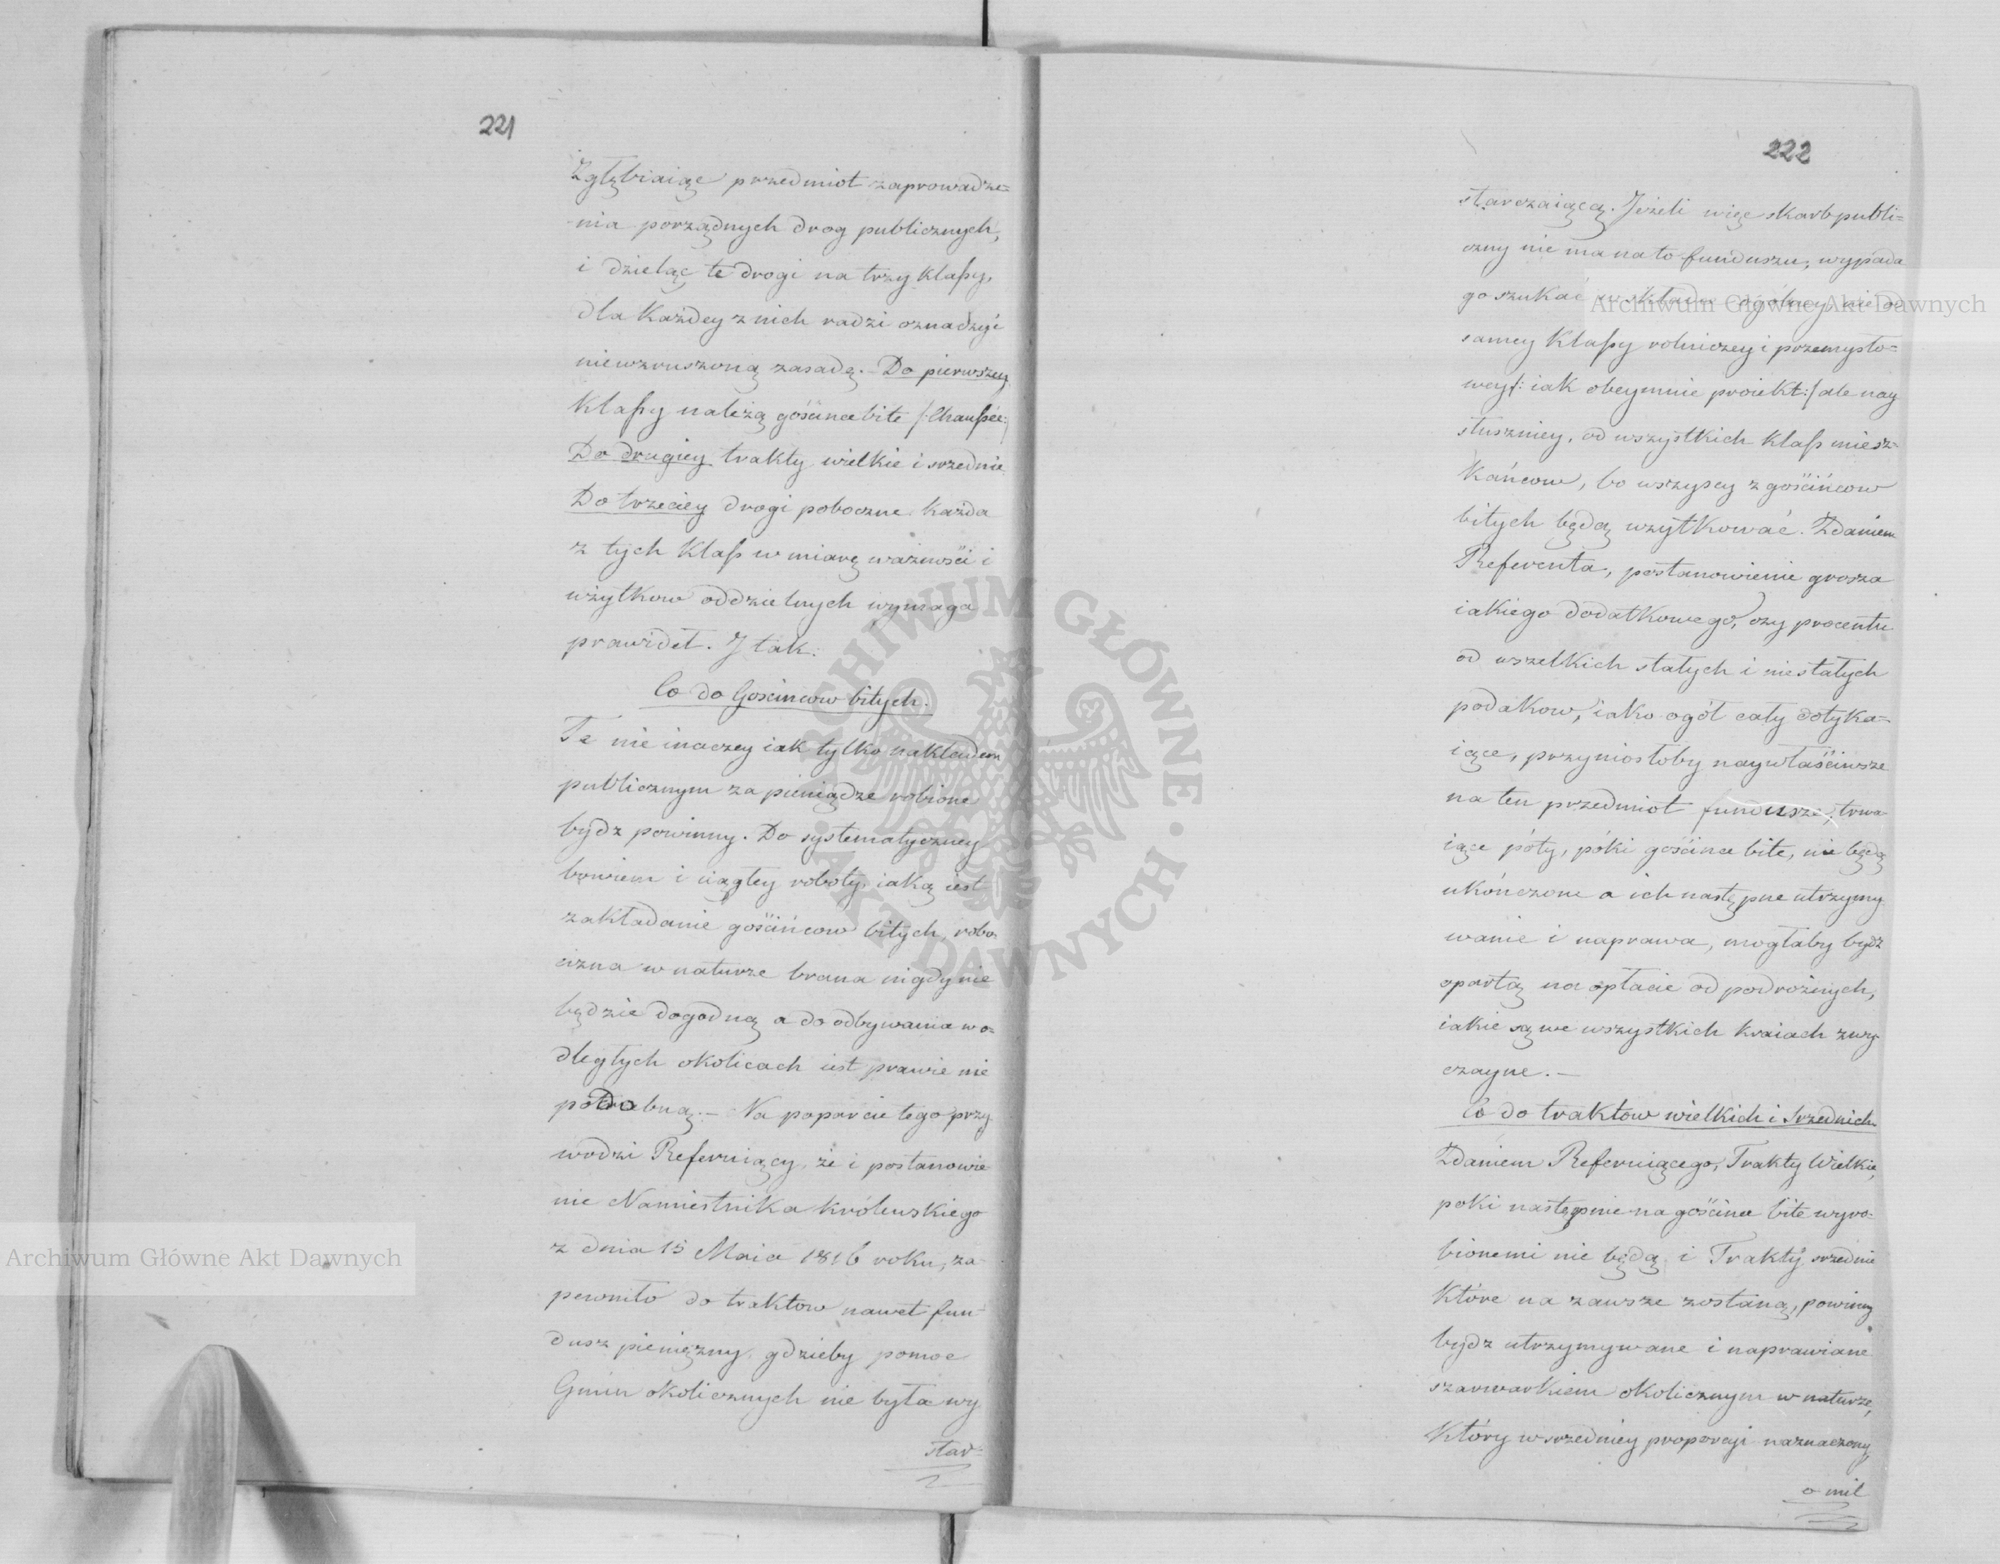 221
Zgłębiaiąc przedmiot zaprowadze=
nia porządnych drog publicznych,
i dzieląc te drogi na trzy klaſsy,
dla każdey z nich radzi oznaczyć
niewzruszoną zasadę. – Do pierwszey
klaſsy należą goścince bite /:Chauſsée:/
Do drugiey trakty wielkie i srzednie.
Do trzeciey drogi poboczne każda
z tych klaſs w miarę ważności i
użytkow oddzielnych wymaga
prawideł. J tak:
Co do Gościncow bitych.
Te nie inaczey iak tylko nakładem
publicznym za pieniądze robione
bydz powinny. Do systematyczney
bowiem i ciągłey roboty, iaką iest
zakładanie gościńcow bitych, robo=
cizna w naturze brana nigdy nie
będzie dogodną a do odbywania w o=
dległych okolicach iest prawie nie
podobną. – Na poparcie tego przy
wodzi Referuiący, że i postanowie
nie Namiestnika królewskiego
z dnia 15 Maia 1816 roku, za=
pewniło do traktow nawet fun=
dusz pieniężny, gdzieby pomoc
Gmin okolicznych nie była wy
star=
222
starczaiącą. Jeżeli więc skarb publi=
czny nie ma na to funduszu, wypada
go szukać w składce ogólney nie od
samey klaſsy rolniczey i przemysło=
wey /: iak obeymuie proiekt :/ ale nay
słuszniey, od wszystkich klaſs miesz=
kańcow, bo wszyscy z gościńcow
bitych będą wżytkować. Zdaniem
Referenta, postanowienie grosza
iakiego dodatkowego, czy procentu
od wszelkich stałych i niestałych
podakow, iako ogół cały dotyka=
iące, przyniosłoby naywłaściwsze
na ten przedmiot fundusze, trwa=
iące póty, póki goścince bite, nie będą
ukończone a ich następne utrzymy
wanie i naprawa, mogłaby bydz
opartą na opłacie od podrożnych,
iakie są we wszystkich kraiach zwy
czayne. –
Co do traktow wielkich i Srzednich
Zdaniem Referuiącego, Trakty Wielkie,
poki następnie na goścince bite wyro=
bionemi nie będą, i Trakty srzednie
które na zawsze zostaną, powinny
bydz utrzymywane i naprawiane
szarwarkiem okolicznym w naturze,
który w srzedniey proporcyi naznaczony
o mil
Archiwum Główne Akt Dawnych
Archiwum Główne Akt Dawnych
ARCHIWUM GŁÓWNE • AKT DAWNYCH •